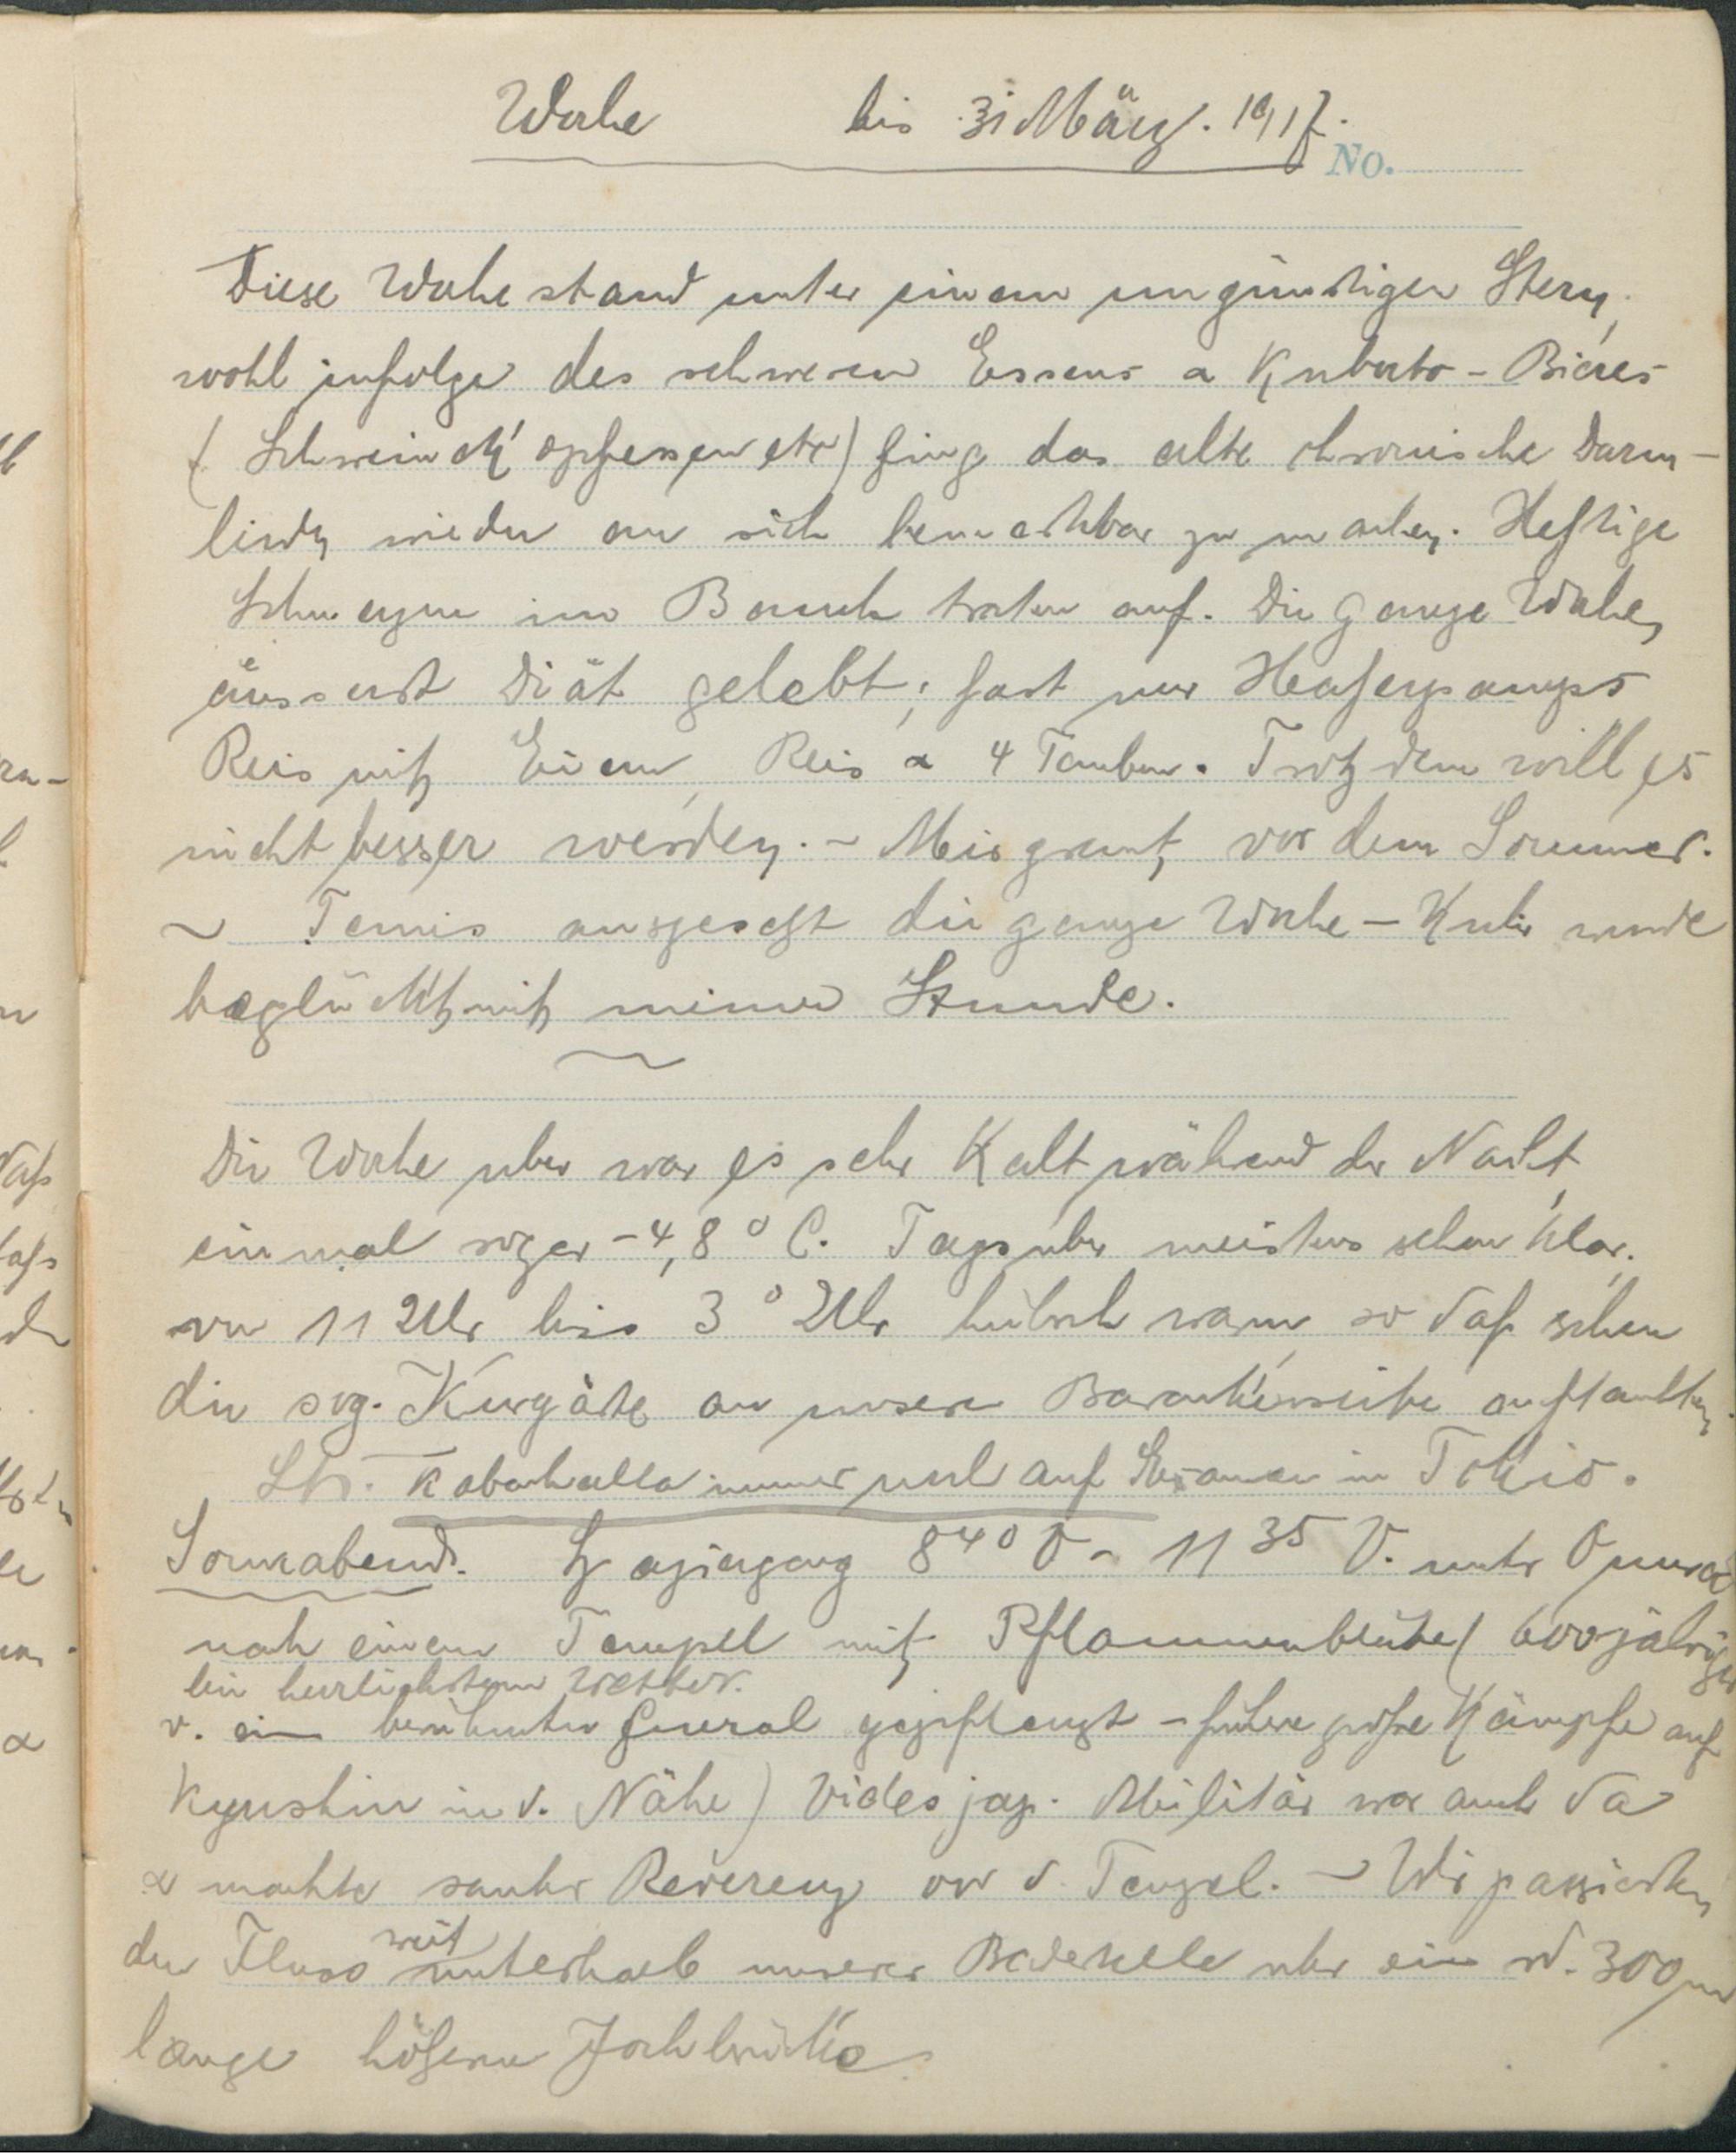 Woche bis 31 März. 1917.
No.
Diese Woche stand unter einem ungünstigen Stern,
wohl infolge des schweren Essens & Kubata-Bieres
(Schweinek'opfessen etc) fing das alte chronische Darm-
leiden wieder an sich bemerkbar zu machen. Heftige
Schmerzen im Bauch traten auf. Die ganze Woche,
äusserst Diät gelebt; fast nur Haferpamps
Reis mit Eiern, Reis & 4 Tauben. Trotzdem will es
nicht besser werden. - Mir graut vor dem Sommer.
~ Tennis ausgesetzt die ganze Woche - wurde
beglückt mit meiner Stunde.
Die Woche uber war es sehr Kalt während der Nacht,
einmal sogar -4,8° C. Tagsuber meistens schon klar,
von 11 Uhr bis 3° Uhr hübsch warm, so daß schon
die sog. Kurgäste an unserer Barackenseite auftauchten.
auf in Tokio.
Sonnabend. Spaziergang 8 40 V - 11 35 V. unter Omura
nach einem Tempel mit Pflaumenblüte (600jähriger
bei herrlichstem Wetter.
v. ein berühmter General gepflanzt - frühere große Kämpfe auf
Kyushiu in d. Nähe) Vieles jap. Militär war auch da
& machte Reverenz vor d. Tempel. - Wir passierten
den Fluss weit unterhalb unserer Badestelle uber eine 300 m
lange hölzerne Jochbrücke.